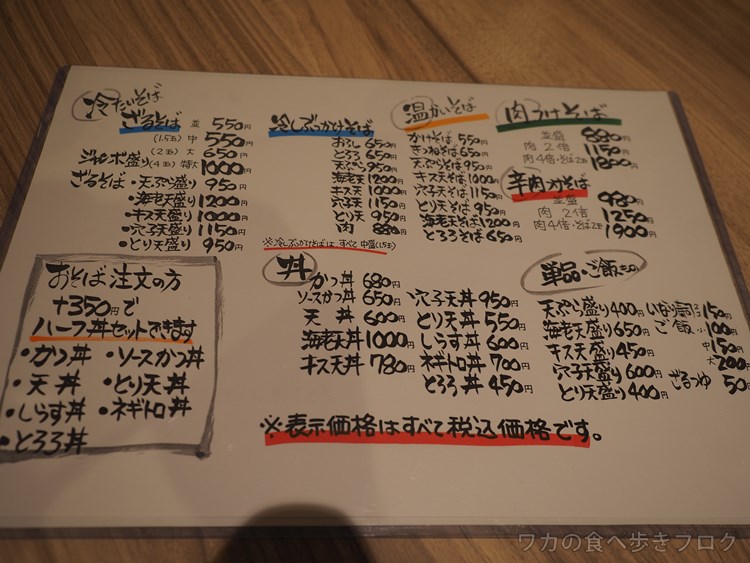 冷たいそば
ざるそば 並 550円
(1.5玉) 中 550円
(2玉) 大 650円
ジャンボ盛り(4玉) 特大 1000円
ざるそば・天ぷら盛り 950円
・海老天盛り 1200円
・キス天盛り 1000円
・穴子天盛り 1150円
・とり天盛り 950円
冷しぶっかけそば
おろし 650円
とろろ 650円
天ぷら 950円
海老天 1200円
キス天 1000円
穴子天 1150円
とり天 950円
肉 880円
※冷しぶっかけそばは すべて 中盛(1.5玉)
温かいそば
かけそば 550円
きつねそば 650円
天ぷらそば 950円
キス天そば 1000円
穴子天そば 1150円
とり天そば 950円
海老天そば 1200円
とろろそば 650円
肉つけそば
並盛 880円
肉2倍 1150円
肉4倍・そば2玉
辛肉つけそば
並盛 980円
肉2倍 1250円
肉4倍・そば2玉 1900円
おそば注文の方
+350円で
ハーフ丼セットできます
・かつ丼 ・ソースかつ丼
・天丼 ・とり天丼
・しらす丼 ・ネギトロ丼
・とろろ丼
丼
かつ丼 680円
ソースかつ丼 650円
天丼 600円
海老天丼 1000円
キス天丼 780円
穴子天丼 950円
とり天丼 550円
しらす丼 600円
ネギトロ丼 700円
とろろ丼 450円
単品・ご飯もの
天ぷら盛り 400円
海老天盛り 650円
キス天盛り 450円
穴子天盛り 600円
とり天盛り 400円
いなり寿司 150円
ご飯 小 100円
中 150円
大 200円
ざるつゆ 50円
※表示価格はすべて税込価格です。
ワカの食べ歩きブログ